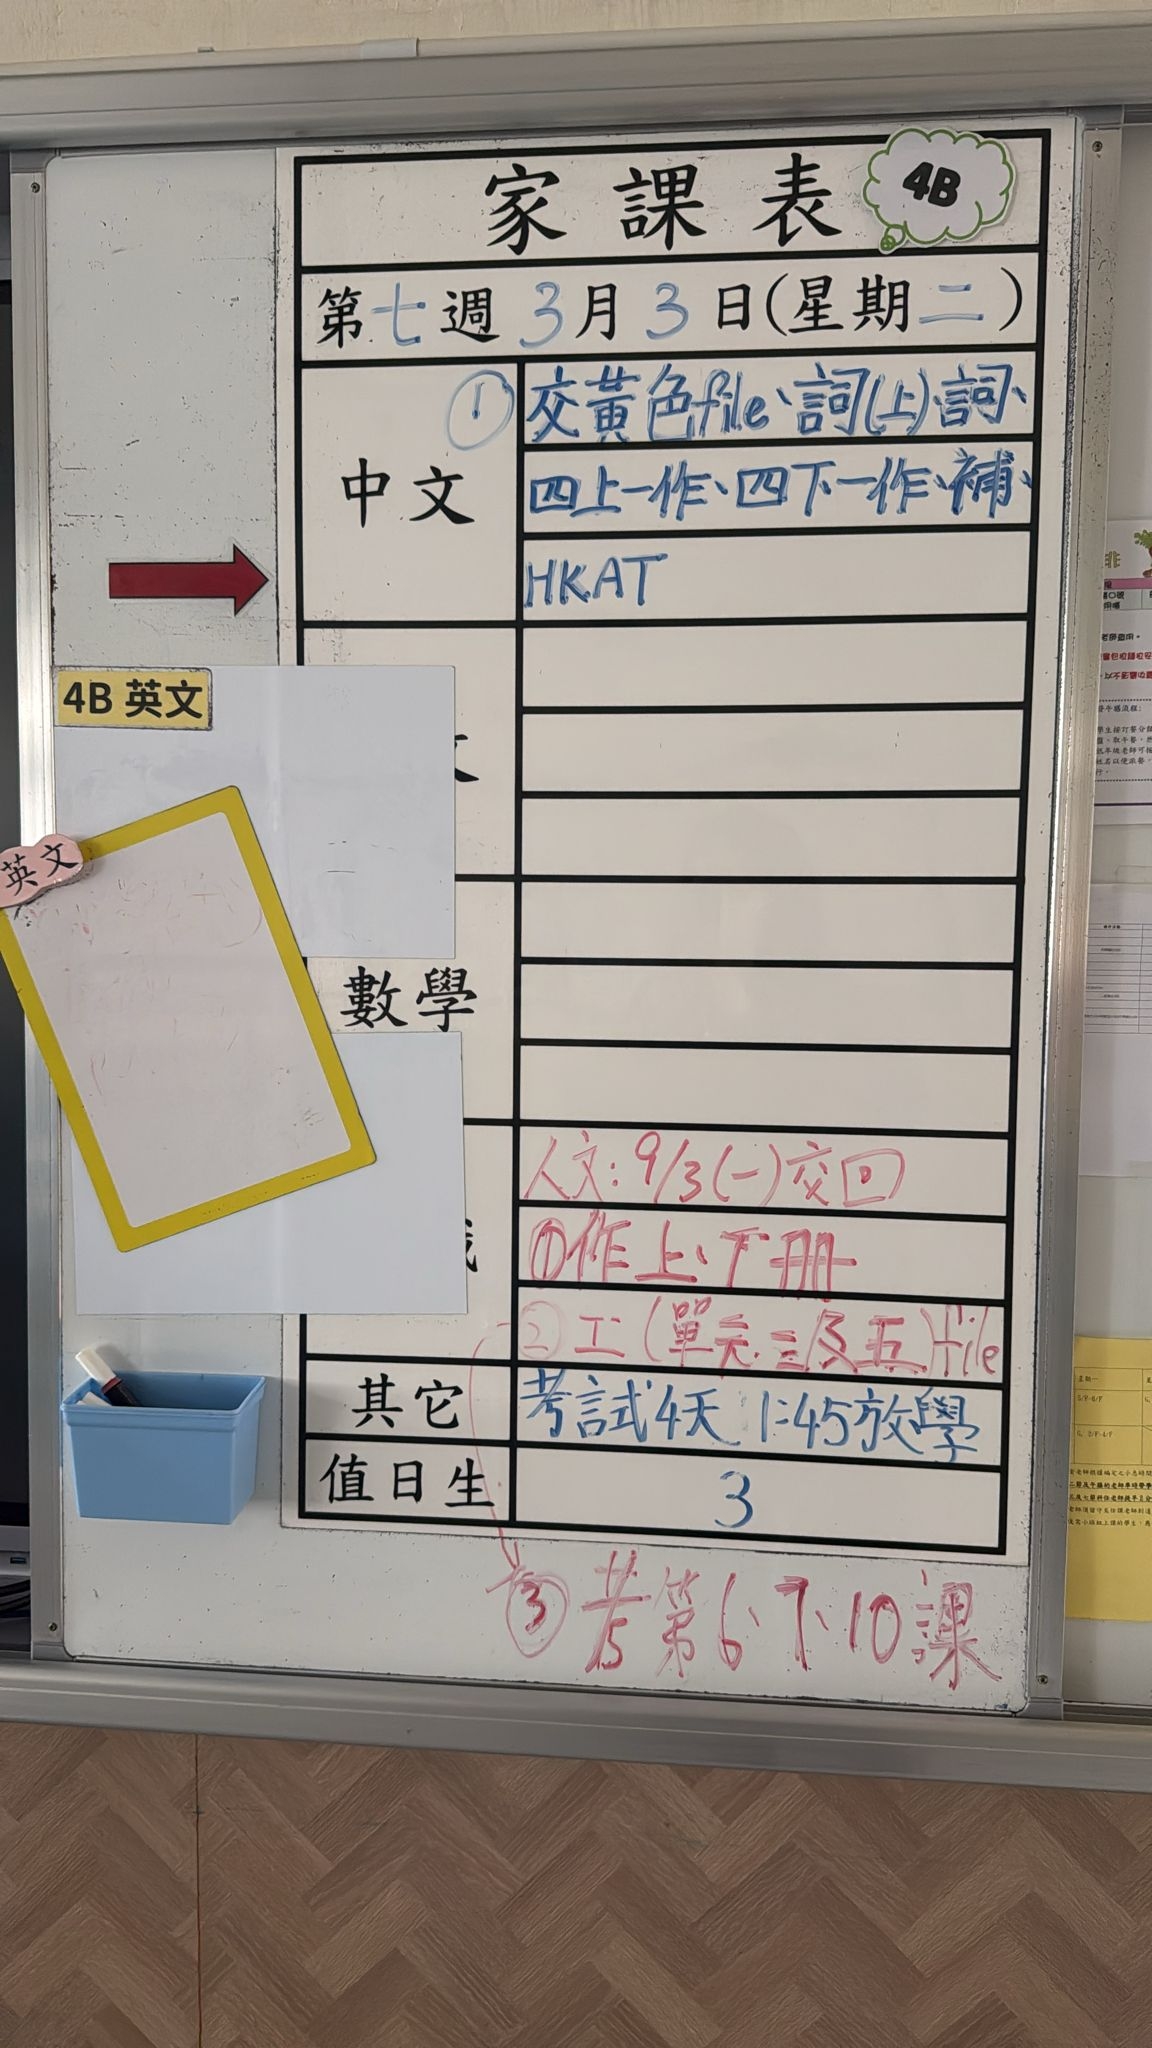 家課表
4B
第七週3月3日(星期二)
中文
①交黃色file、詞(上)、詞、
四上一作、四下一作、補、
HKAT
4B 英文
文
英文
數學
人文:9/3(一)交回
①作上、下冊
②工(單元三及五)file
其它
考試4天 1:45放學
值日生
3
③考第6、下10課